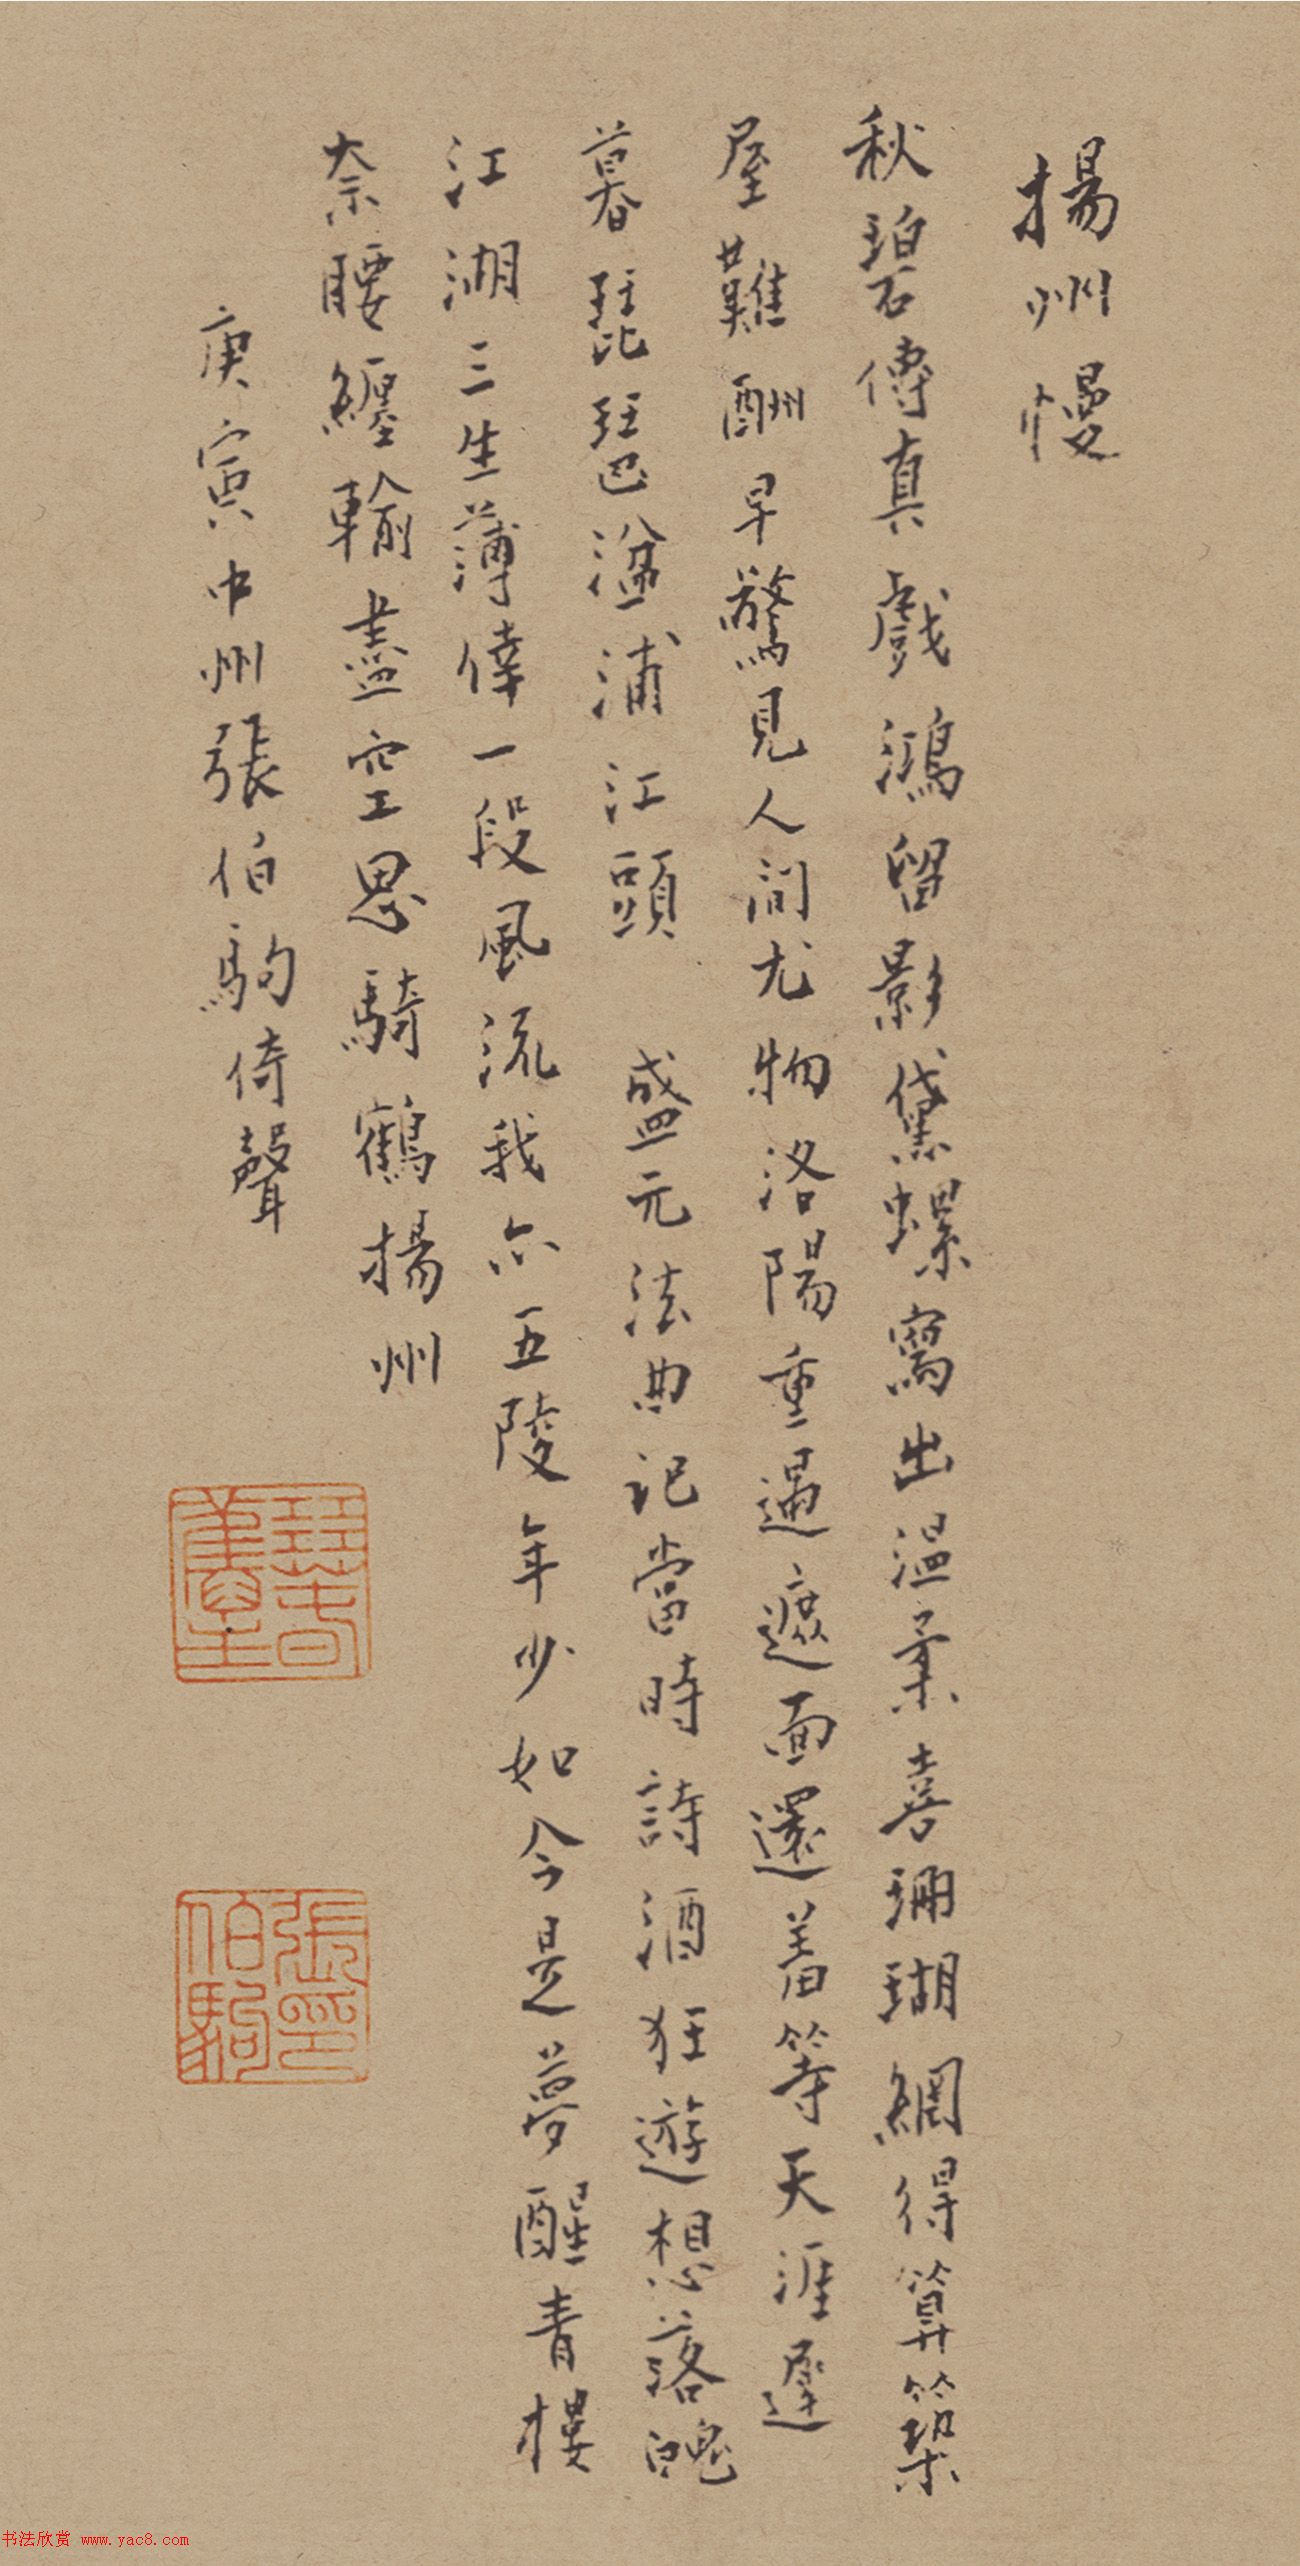 揚州慢
秋碧傳真戲鴻留影黛螺寫出溫柔喜珊瑚網得算築
屋難酬早驚見人間尤物洛陽重遇遮面還羞等天涯遲
暮琵琶湓浦江頭 盛元法曲記當時詩酒狂遊想落魄
江湖三生薄倖一段風流我亦五陵年少如今是夢醒青樓
奈腰纏輸盡空思騎鶴揚州
庚寅中州張伯駒倚聲
張伯駒印
书法欣赏 www.yac8.com